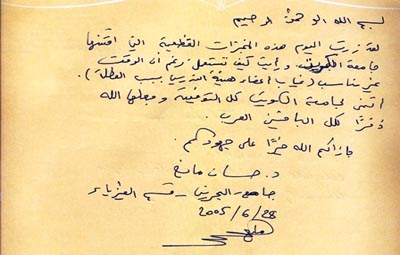 بسم الله الرحمن الرحيم
لقد زرت اليوم هذه المختبرات القطعية التي اقتنتها
جامعة الكويت، ورأيت كيف تستعمل رغم أن الوقت
غير مناسب (غياب أعضاء هيئة التدريس بسبب العطلة).
أتمنى لجامعة الكويت كل التوفيق وجعلها الله
ذخرًا لكل الباحثين العرب.
جازاكم الله خيرًا على جهودكم.
د. حسان
جامعة البحرين - قسم الفيزياء
2005/6/28